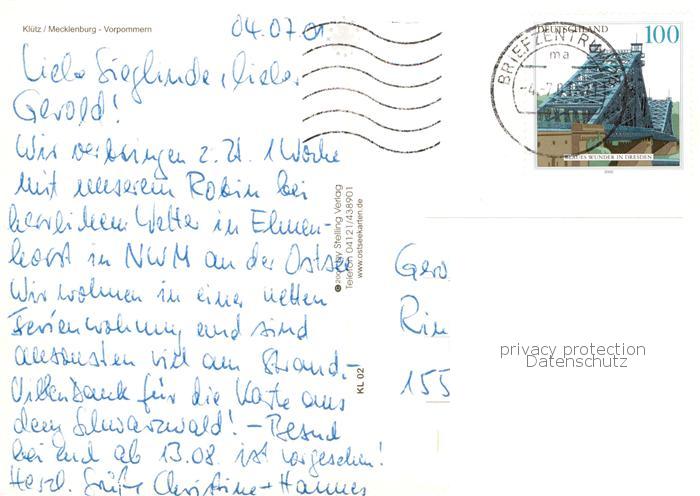 Klütz / Mecklenburg - Vorpommern
04.07.01
Liebe Sieglinde, lieber
Gerold!
Wir verbringen z. Zt. 1 Woche
mit unserem Robin bei
herrlichem Wetter in Elmen-
horst in NWM an der Ostsee
Wir wohnen in einer netten
Ferienwohnung und sind
ansonsten viel am Strand.-
Vielen Dank für die Karte aus
dem Schwarzwald! - Besuch
bei euch ab 13.08. ist vorgesehen!
Herzl. Grüße Christine + Hannes
Stelling Verlag
Telefon 04121/438901
www.ostseekarten.de
KL 02
DEUTSCHLAND 100
BLAUES WUNDER IN DRESDEN
2000
BRIEFZENTRUM
ma
Gero
Rin
155
privacy protection
Datenschutz